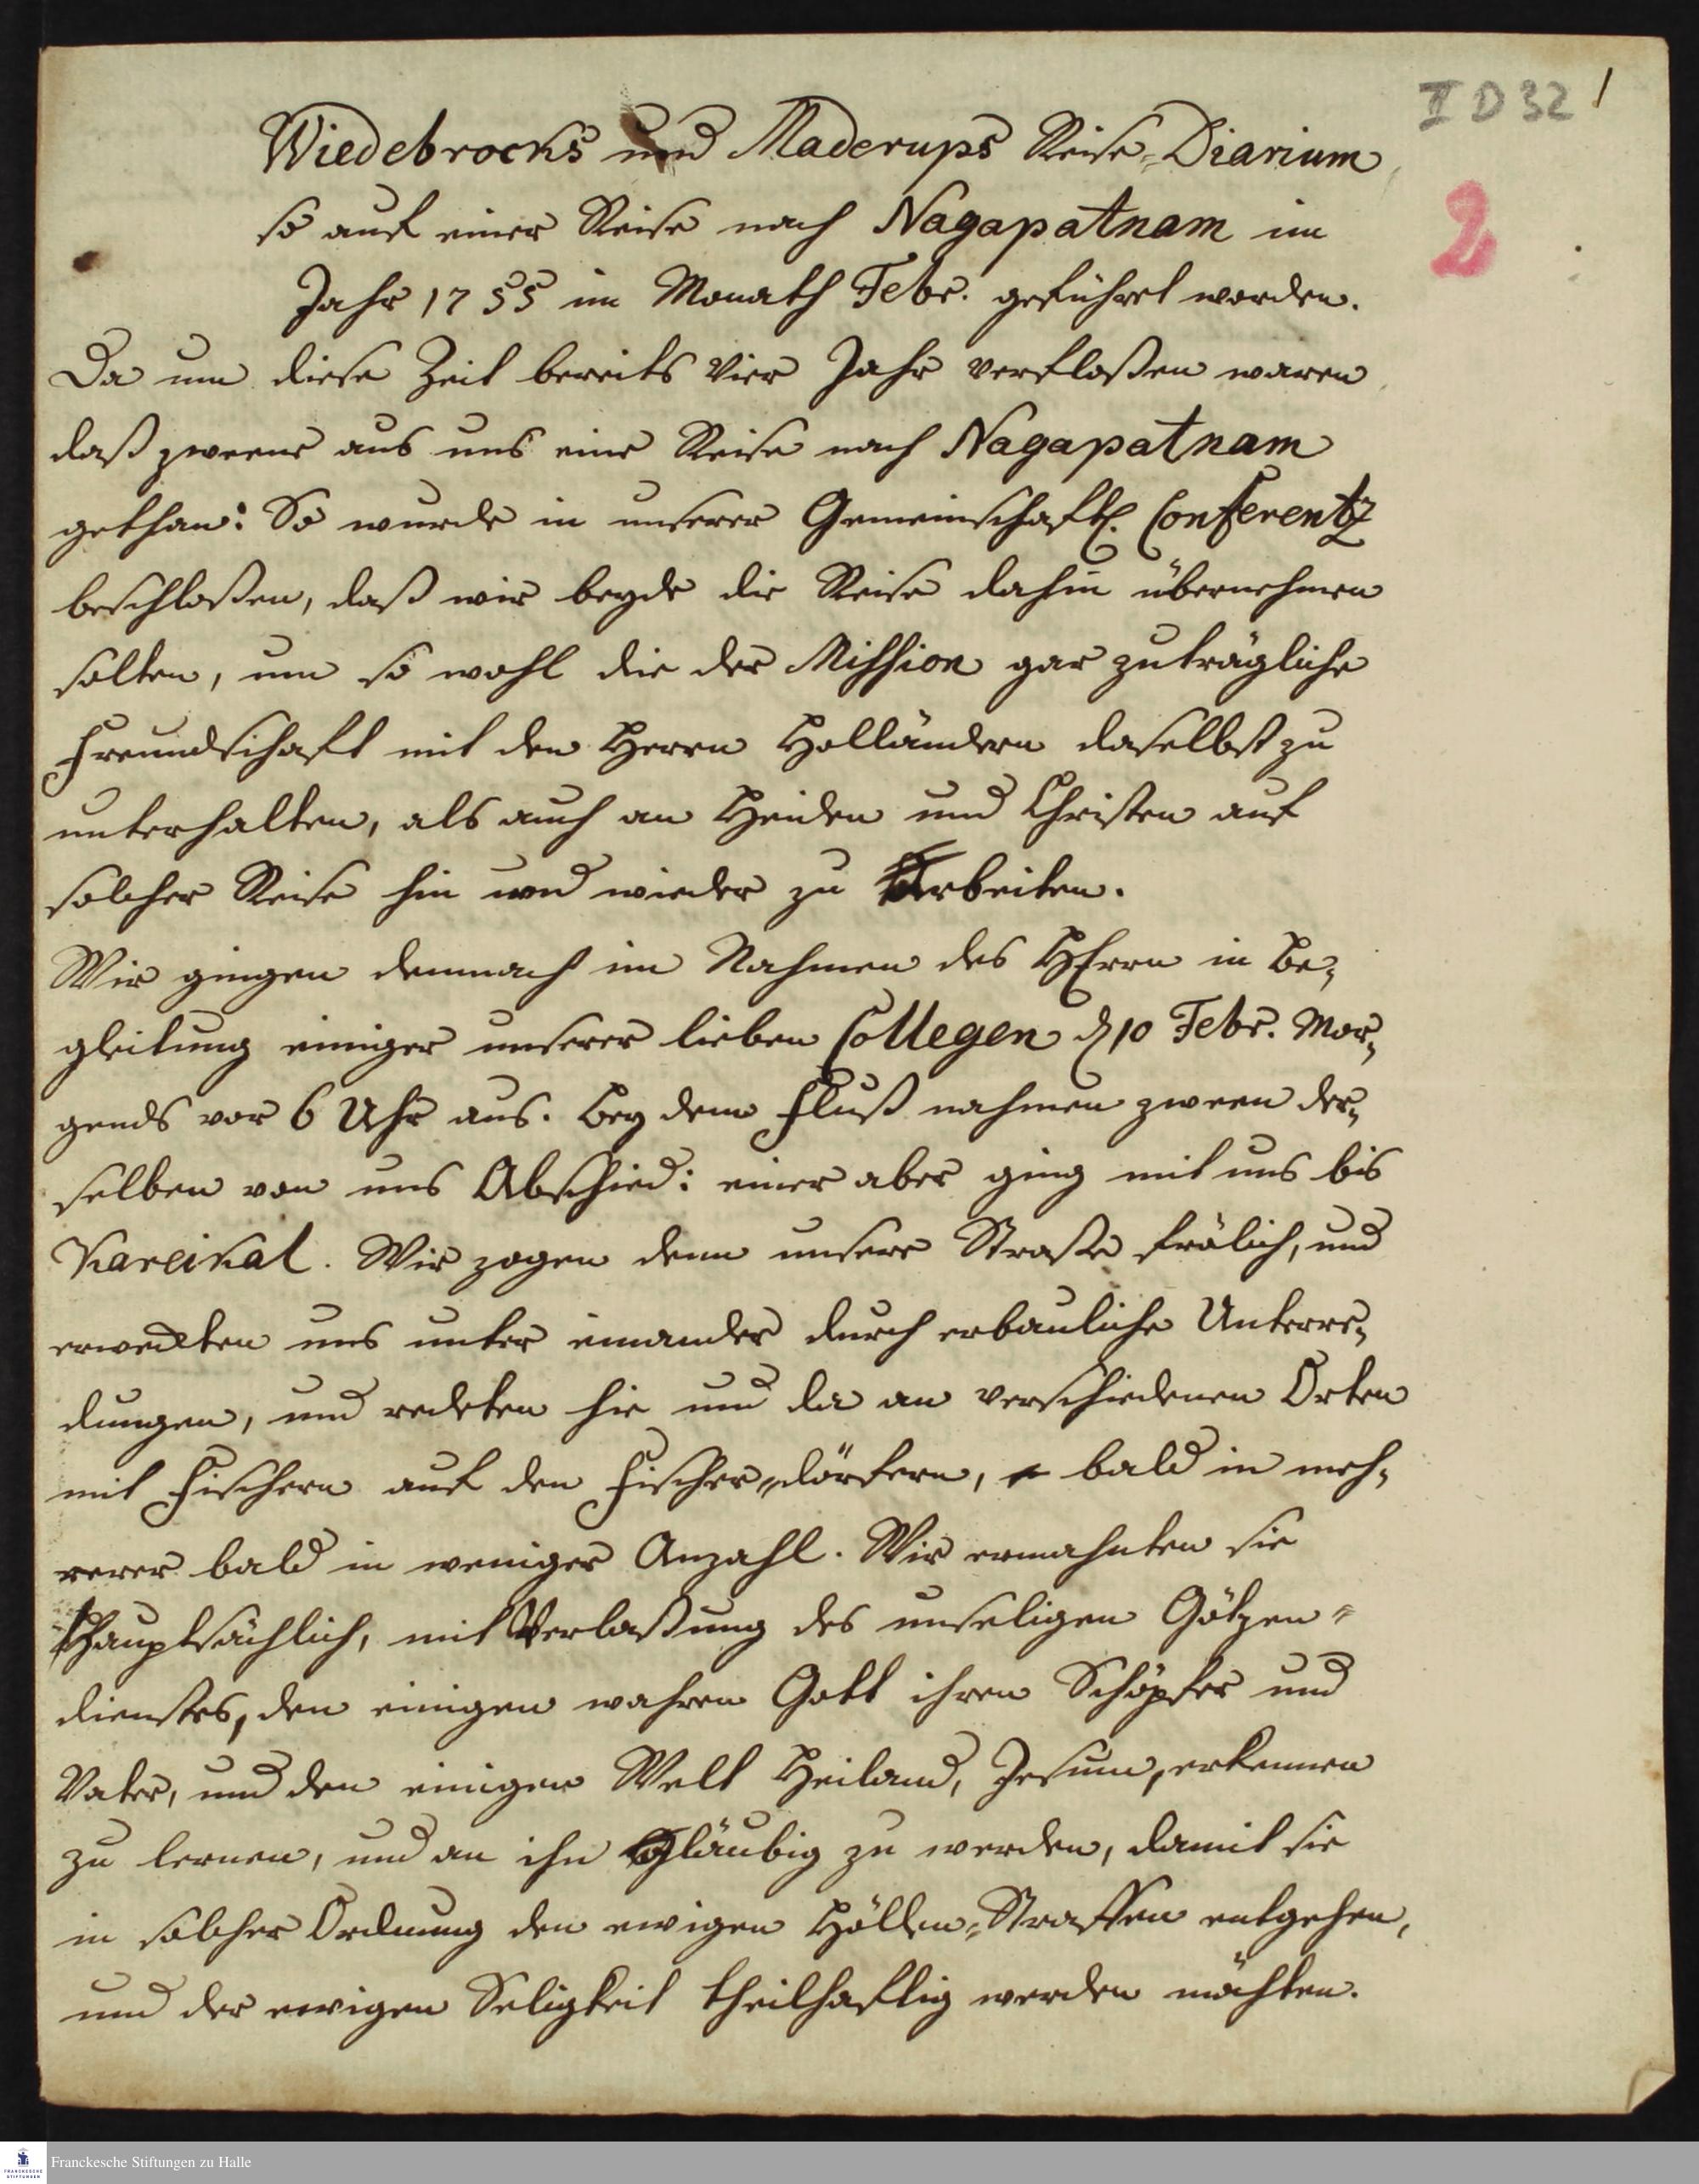 II D 32 1
Wiedebrocks und Maderups Reise-Diarium
2
so auf einer Reise nach Nagapatnam im
Jahr 1755 im Monath Febr. geführet worden.
Da um diese Zeit bereits vier Jahr verfloßen waren
daß zweene aus uns eine Reise nach Nagapatnam
gethan: So wurde in unserer Gemeinschaftl. Conferentz
beschloßen, daß wir beyde die Reise dahin übernehmen
solten, um so wohl die der Mission gar zuträgliche
Freundschaft mit den Herrn Holländern daselbst zu
unterhalten, als auch an Heiden und Christen auf
solcher Reise hin und wieder zu arbeiten.
Wir gingen demnach im Nahmen des HErrn in Be-
gleitung einiger unserer lieben Collegen d 10 Febr. Mor-
gends vor 6 Uhr aus. Bey dem Fluß nahmen zween der-
selben von uns Abschied: einer aber ging mit uns bis
Kareikal. Wir zogen denn unsere Straße frölich, und
erweckten uns unter einander durch erbauliche Unterre-
dungen, und redeten hie und da an verschiedenen Orten
mit Fischern auf den Fischer-dörfern, bald in meh-
rerer bald in weniger Anzahl. Wir ermahnten sie
Hauptsächlich, mit Verlaßung des unseligen Götzen-
dienstes, den einigen wahren Gott ihren Schöpfer und
Vater, und den einigen Welt Heiland, Jesum, erkennen
zu lernen, und an ihn gläubig zu werden, damit sie
in solcher Ordnung den ewigen Höllen-Straffen entgehen,
und der ewigen Seligkeit theilhaftig werden möchten.
Franckesche Stiftungen zu Halle